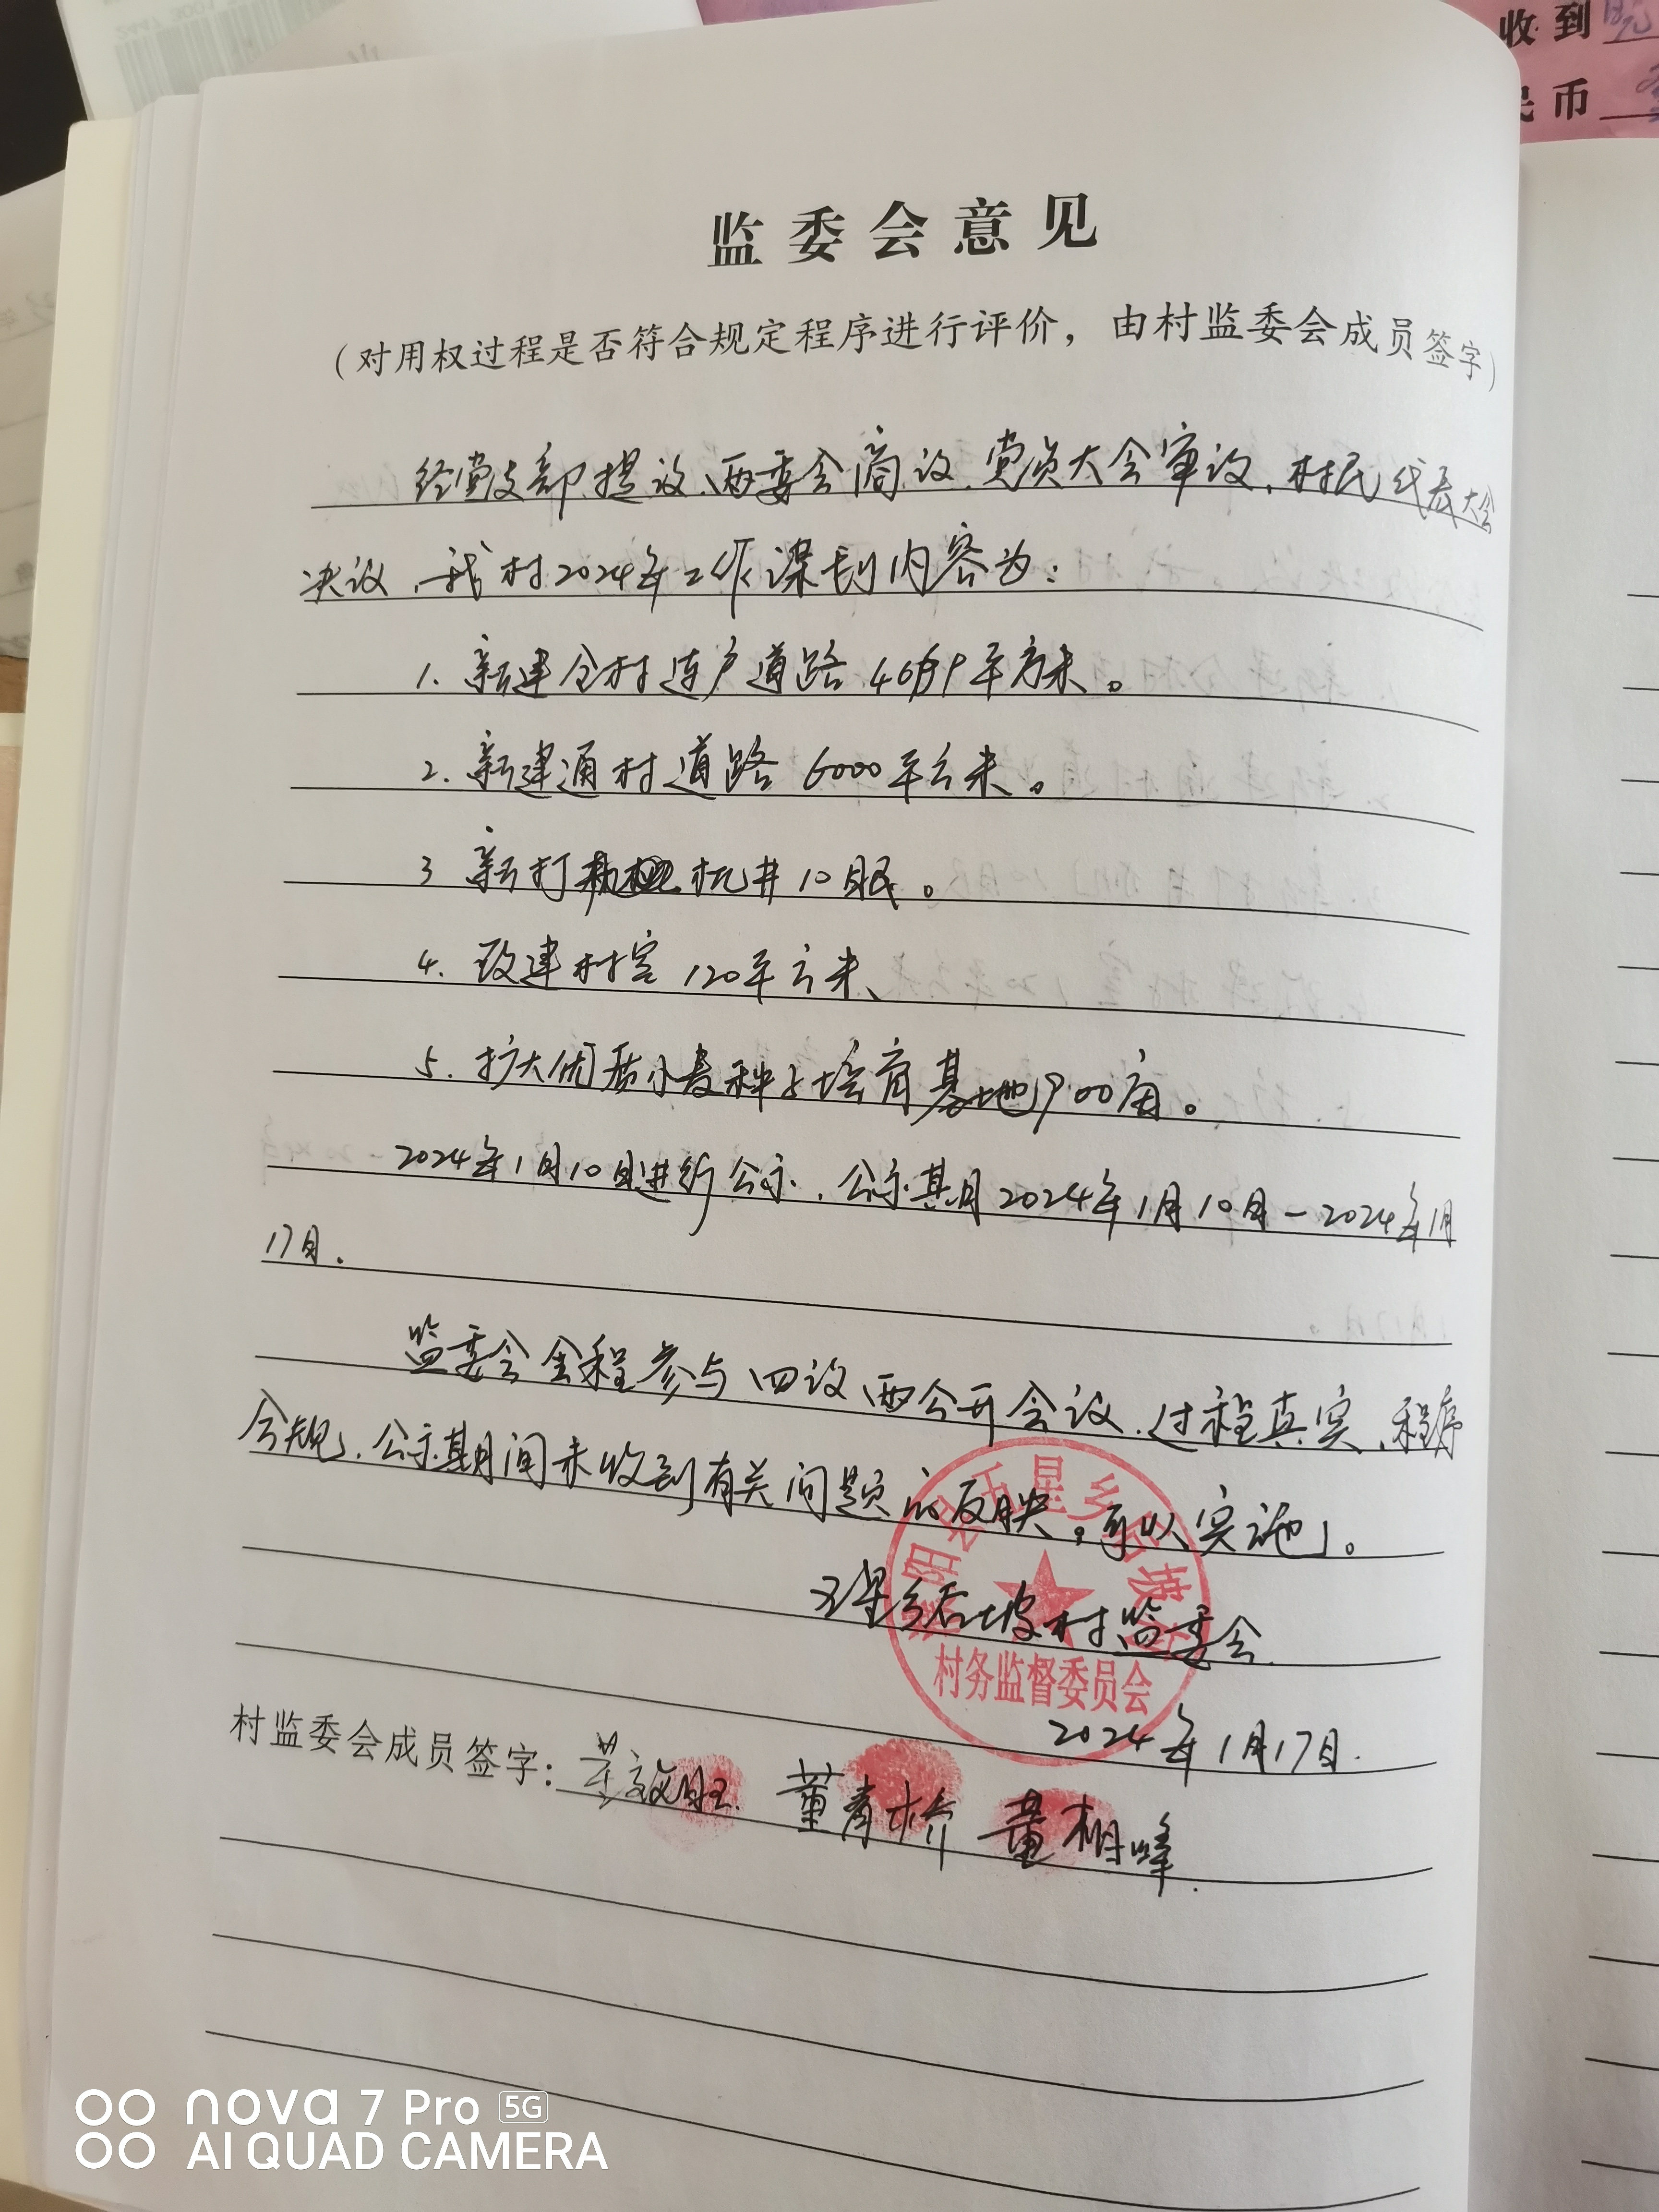 收到
民币
监委会意见
(对用权过程是否符合规定程序进行评价，由村监委会成员签字)
经党支部提议、两委会商议、党员大会审议、村民代表大会
决议，我村2024年工作谋划内容为：
1. 新建全村连户道路 平方米。
2. 新建通村道路 6000平方米。
3 新打 机井10眼。
4. 改建村室 120平方米、
5. 扩大优质小麦种子培育基地 亩。
2024年1月10日进行公示，公示期自2024年1月10日-2024年1月
17日.
监委会全程参与四议两公开会议，过程真实，程序
合规，公示期间未收到有关问题的反映。可以实施。
五星乡石坡村监委会.
五星乡石坡
村务监督委员会
2024年1月17日.
村监委会成员签字： 董青桥
nova 7 Pro 5G
AI QUAD CAMERA